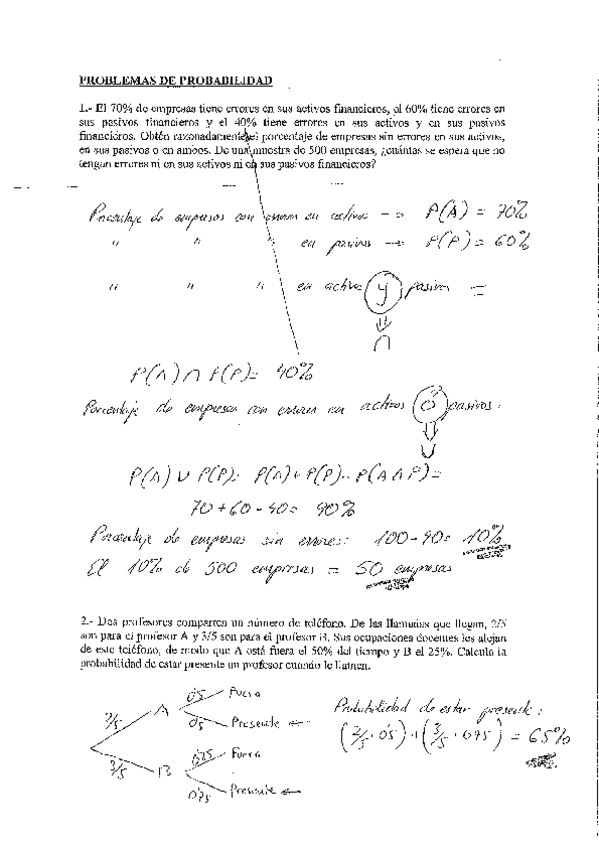 PROBLEMAS DE PROBABILIDAD
1.- El 70% de empresas tiene errores en sus activos financieros, el 60% tiene errores en
sus pasivos financieros y el 40% tiene errores en sus activos y en sus pasivos
financieros. Obtén razonadamente el porcentaje de empresas sin errores en sus activos,
en sus pasivos o en ambos. De una muestra de 500 empresas, ¿cuántas se espera que no
tengan errores ni en sus activos ni en sus pasivos financieros?
Porcentaje de empresas con errores en activos --> P(A) = 70%
" " " en pasivos --> P(P) = 60%
" " " en activos y pasivos =
⇓
∩
P(A) ∩ P(P) = 40%
Porcentaje de empresas con errores en activos ó pasivos:
⇓
∪
P(A) ∪ P(P) = P(A) + P(P) - P(A ∩ P) =
70 + 60 - 40 = 90%
Porcentaje de empresas sin errores: 100 - 90 = 10%
El 10% de 500 empresas = 50 empresas
2.- Dos profesores comparten un número de teléfono. De las llamadas que llegan, 2/5
son para el profesor A y 3/5 son para el profesor B. Sus ocupaciones docentes les alejan
de este teléfono, de modo que A está fuera el 50% del tiempo y B el 25%. Calcula la
probabilidad de estar presente un profesor cuando le llamen.
2/5 A 0'5 Fuera
0'5 Presente ←
3/5 B 0'25 Fuera
0'75 Presente ←
Probabilidad de estar presente:
(2/5 · 0'5) + (3/5 · 0'75) = 65%